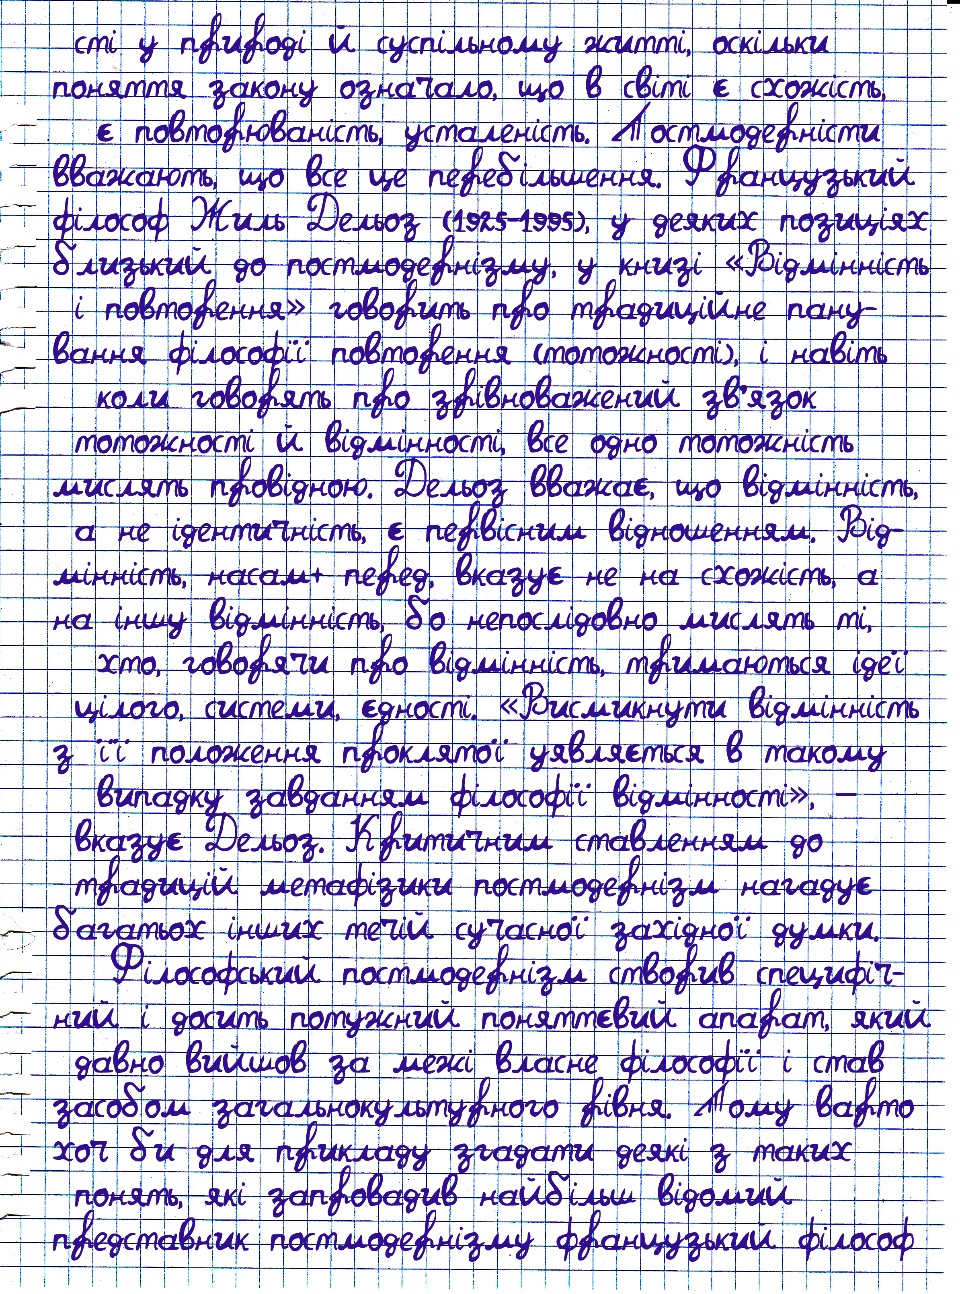 сті у природі й суспільному житті, оскільки
поняття закону означало, що в світі є схожість,
є повторюваність, усталеність. Постмодерністи
вважають, що все це перебільшення. Французький
філософ Жиль Дельоз (1925-1995), у деяких позиціях
близький до постмодернізму, у книзі «Відмінність
і повторення» говорить про традиційне пану-
вання філософії повторення (тотожності), і навіть
коли говорять про зрівноважений зв'язок
тотожності й відмінності, все одно тотожність
мислять провідною. Дельоз вважає, що відмінність,
а не ідентичність, є первісним відношенням. Від-
мінність, насам+ перед, вказує не на схожість, а
на іншу відмінність, бо непослідовно мислять ті,
хто, говорячи про відмінність, тримаються ідеї
цілого, системи, єдності. «Висмикнути відмінність
з її положення проклятої уявляється в такому
випадку завданням філософії відмінності», —
вказує Дельоз. Критичним ставленням до
традицій метафізики постмодернізм нагадує
багатьох інших течій сучасної західної думки.
Філософський постмодернізм створив специфіч-
ний і досить потужний поняттєвий апарат, який
давно вийшов за межі власне філософії і став
засобом загальнокультурного рівня. Тому варто
хоч би для прикладу згадати деякі з таких
понять, які запровадив найбільш відомий
представник постмодернізму французький філософ